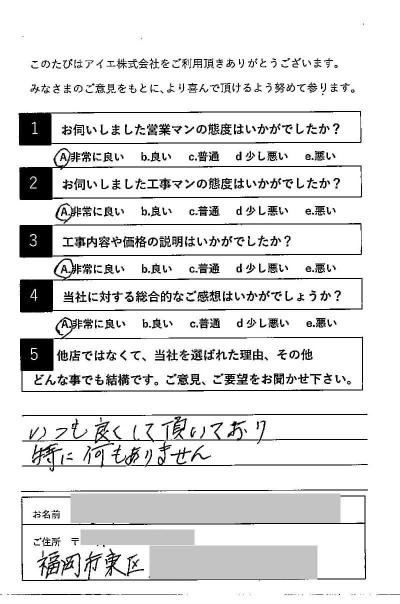 このたびはアイエ株式会社をご利用頂きありがとうございます。
みなさまのご意見をもとに、より喜んで頂けるよう努めて参ります。
1 お伺いしました営業マンの態度はいかがでしたか？
A.非常に良い b.良い c.普通 d少し悪い e.悪い
2 お伺いしました工事マンの態度はいかがでしたか？
A.非常に良い b.良い c.普通 d少し悪い e.悪い
3 工事内容や価格の説明はいかがでしたか？
A.非常に良い b.良い c.普通 d少し悪い e.悪い
4 当社に対する総合的なご感想はいかがでしょうか？
A.非常に良い b.良い c.普通 d少し悪い e.悪い
5 他店ではなくて、当社を選ばれた理由、その他
どんな事でも結構です。ご意見、ご要望をお聞かせ下さい。
いつも良くして頂いており
特に何もありません
お名前
ご住所 〒
福岡市東区